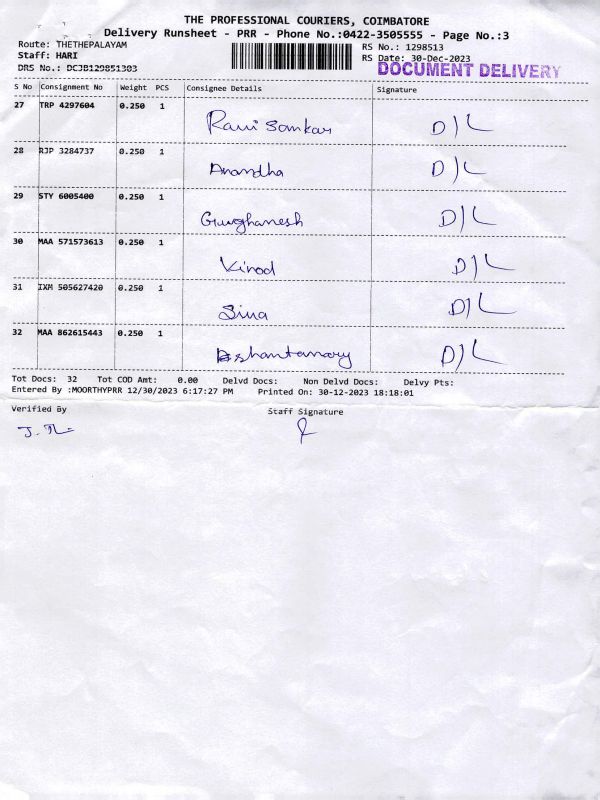 THE PROFESSIONAL COURIERS, COIMBATORE
Delivery Runsheet - PRR - Phone No.:0422-3505555 - Page No.:3
Route: THETHEPALAYAM
RS No.: 1298513
Staff: HARI
RS Date: 30-Dec-2023
DRS No.: DCJB129851303
DOCUMENT DELIVERY
S No Consignment No Weight PCS Consignee Details Signature
27 TRP 4297604 0.250 1 Ravi Sankar D)L
28 RJP 3284737 0.250 1 Anandha D)L
29 STY 6005400 0.250 1 Gurughanesh D)L
30 MAA 571573613 0.250 1 Vinod D)L
31 IXM 505627420 0.250 1 Siva D)L
32 MAA 862615443 0.250 1 D)L
Tot Docs: 32 Tot COD Amt: 0.00 Delvd Docs: Non Delvd Docs: Delvy Pts:
Entered By :MOORTHYPRR 12/30/2023 6:17:27 PM Printed On: 30-12-2023 18:18:01
Verified By Staff Signature